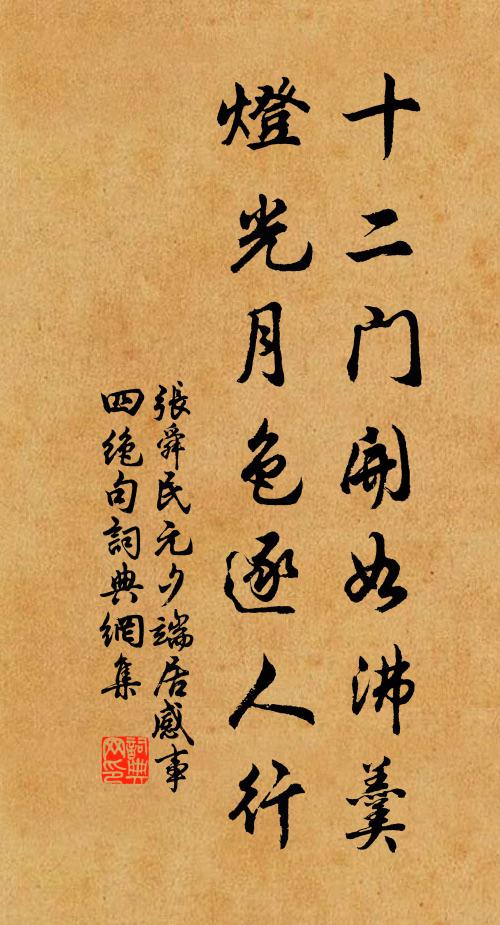 十二门開如沸羹
燈光月色逐人行
張舜民元夕端居感事
四絶句詞典網集
詞典
网印